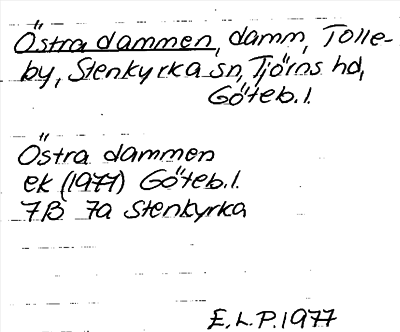 Östra dammen, damm, Tolle-
by, Stenkyrka sn, Tjörns hd,
Göteb.l.
Östra dammen
ek (1977) Göteb.l.
7B 7a Stenkyrka
E.L.P.1977